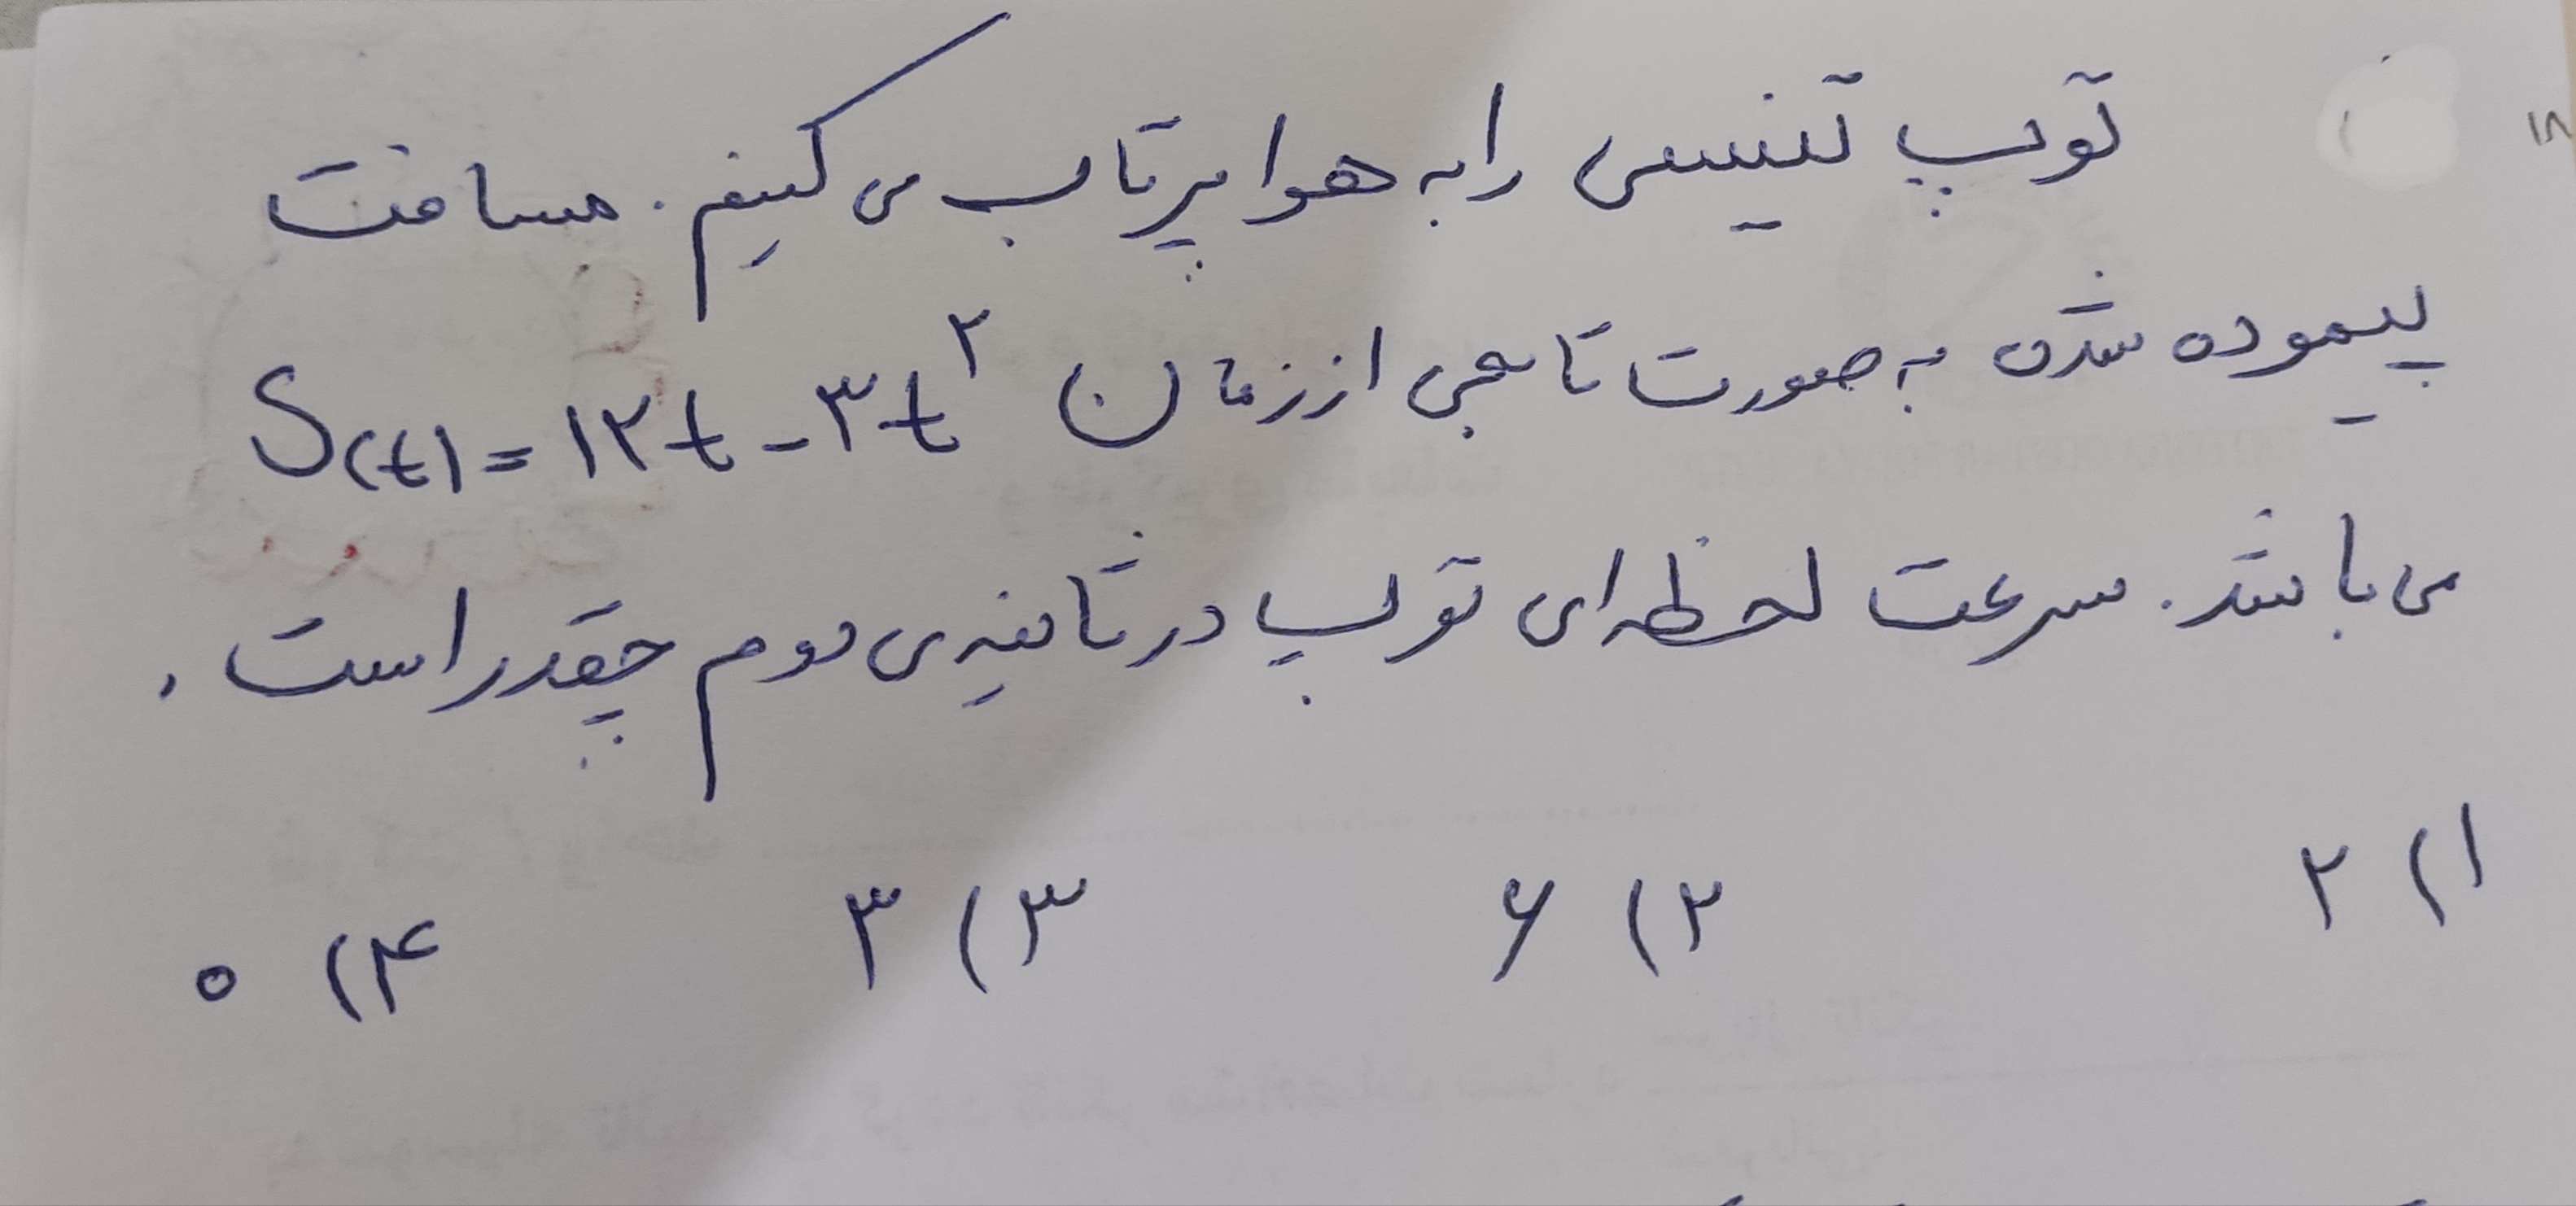 ۱۸
توپ تنیسی را به هوا پرتاب می کنیم. مسافت
پیموده شده به صورت تابعی از زمان S(t) = ۱۲t - ۳t^۲
می باشد. سرعت لحظه ای توپ در ثانیه ی دوم چقدر است.
۱) ۲ ۲) ۶ ۳) ۳ ۴) ۰